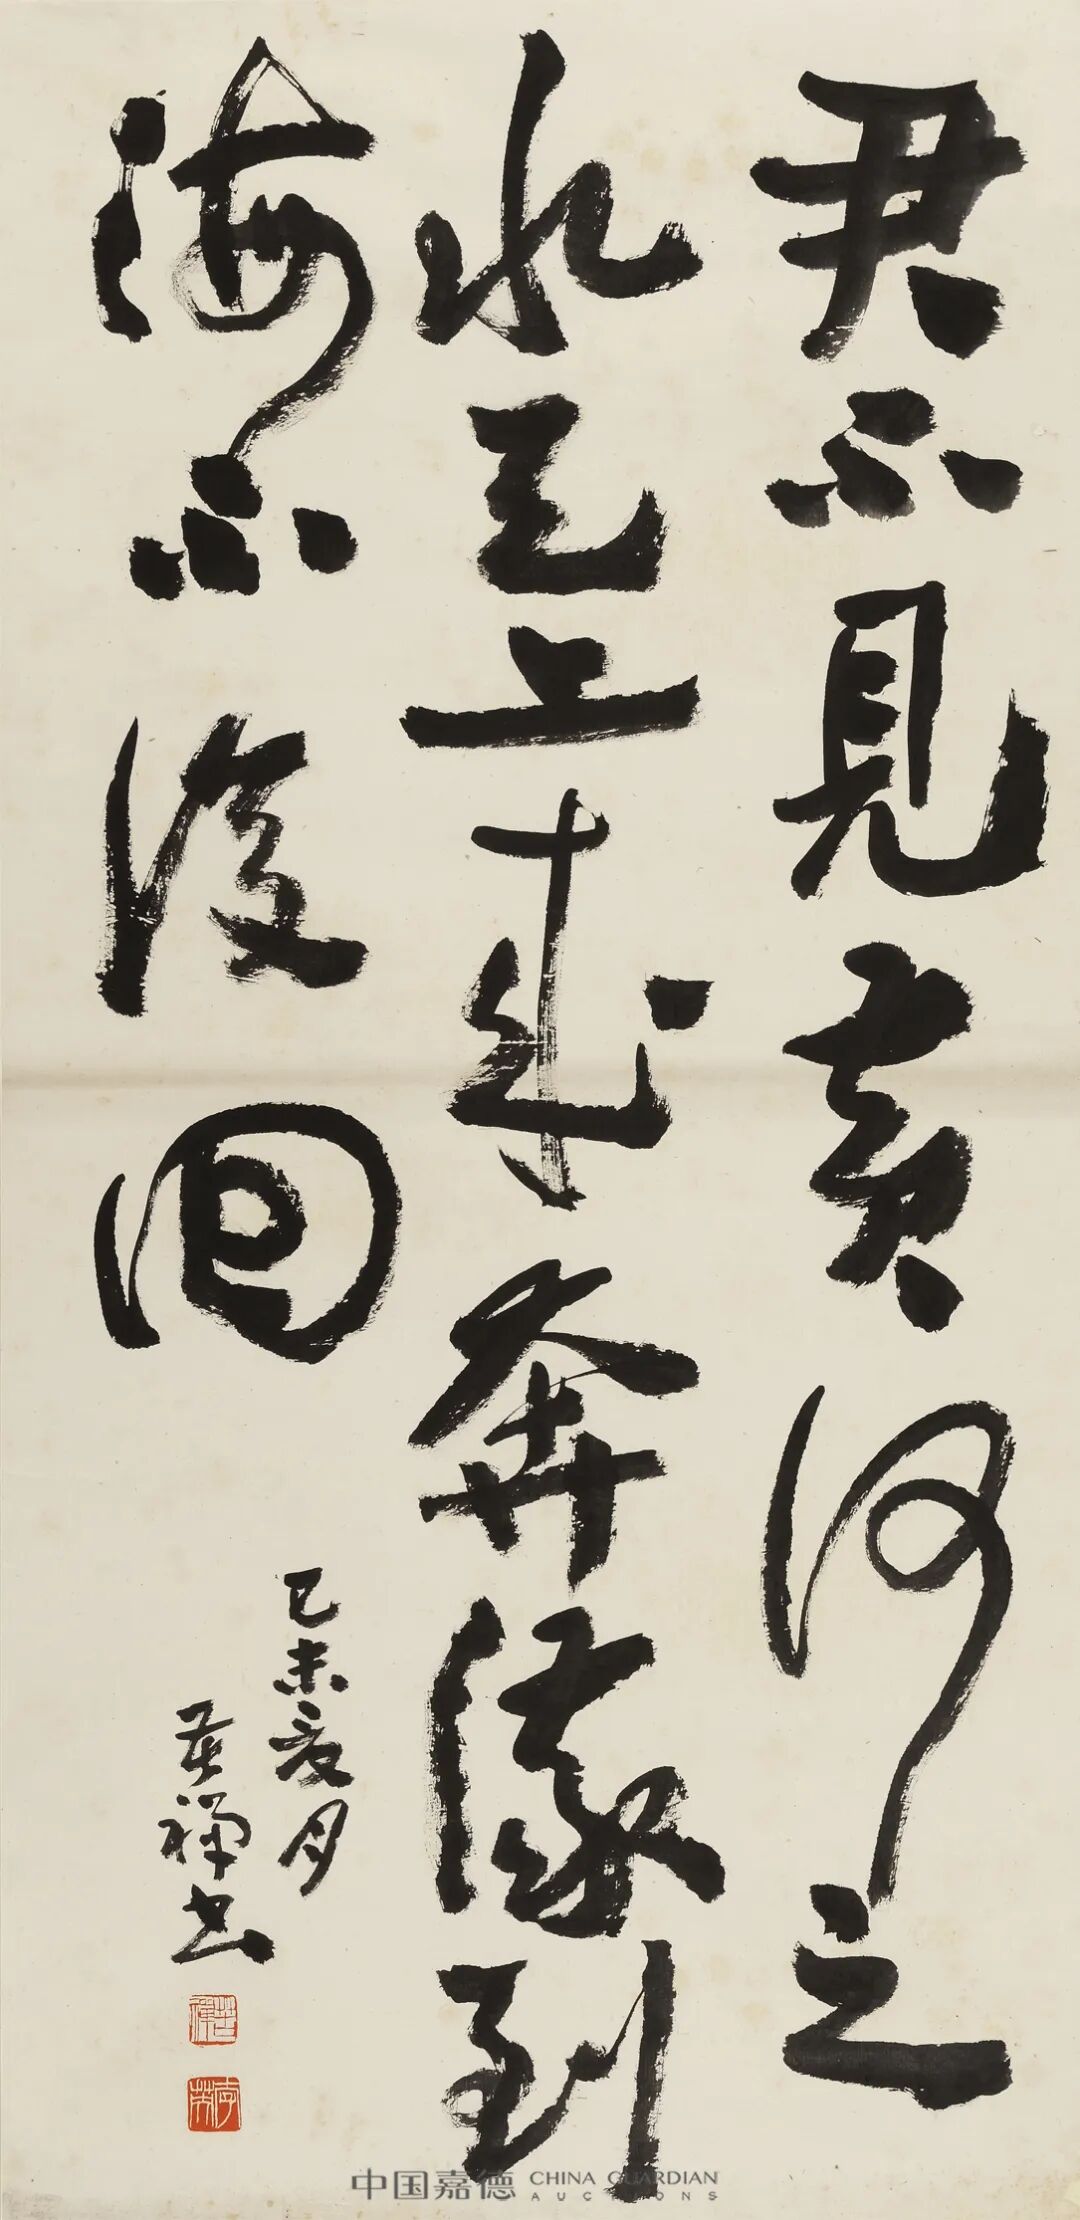 君不見黄河之
水天上來奔流到
海不復回
己未夏月
苦禪書
苦禪
李英
中国嘉德 CHINA GUARDIAN AUCTIONS